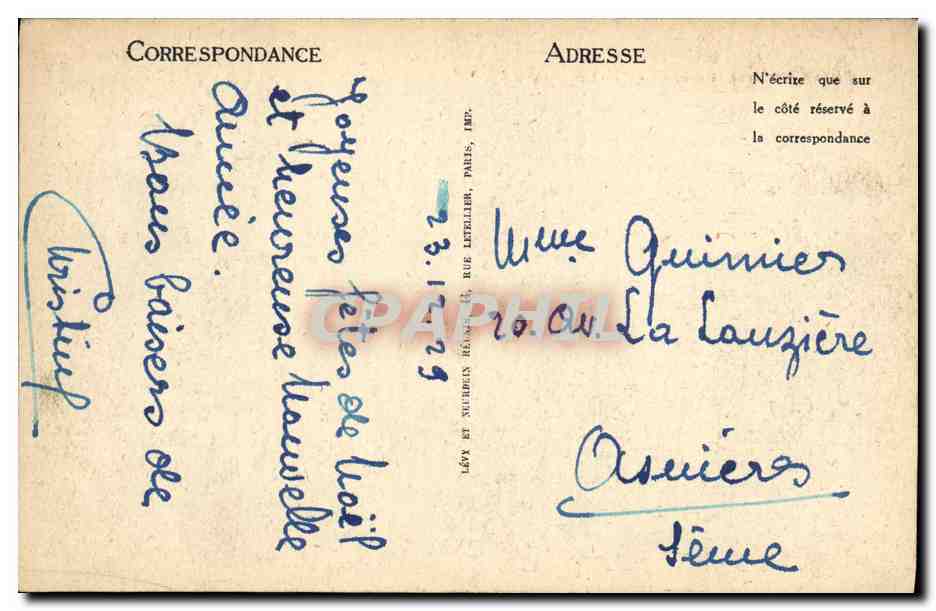 CORRESPONDANCE
ADRESSE
N'écrire que sur
le côté réservé à
la correspondance
23.12.29
Joyeuses fêtes de Noël
et heureuse Nouvelle
Année.
bons baisers de
LÉVY ET NEURDEIN RÉUNIS, 44, RUE LETELLIER, PARIS, IMP.
Mme Quimier
20. Av. La Lauzière
Asnières
Seine
CPAPHIL